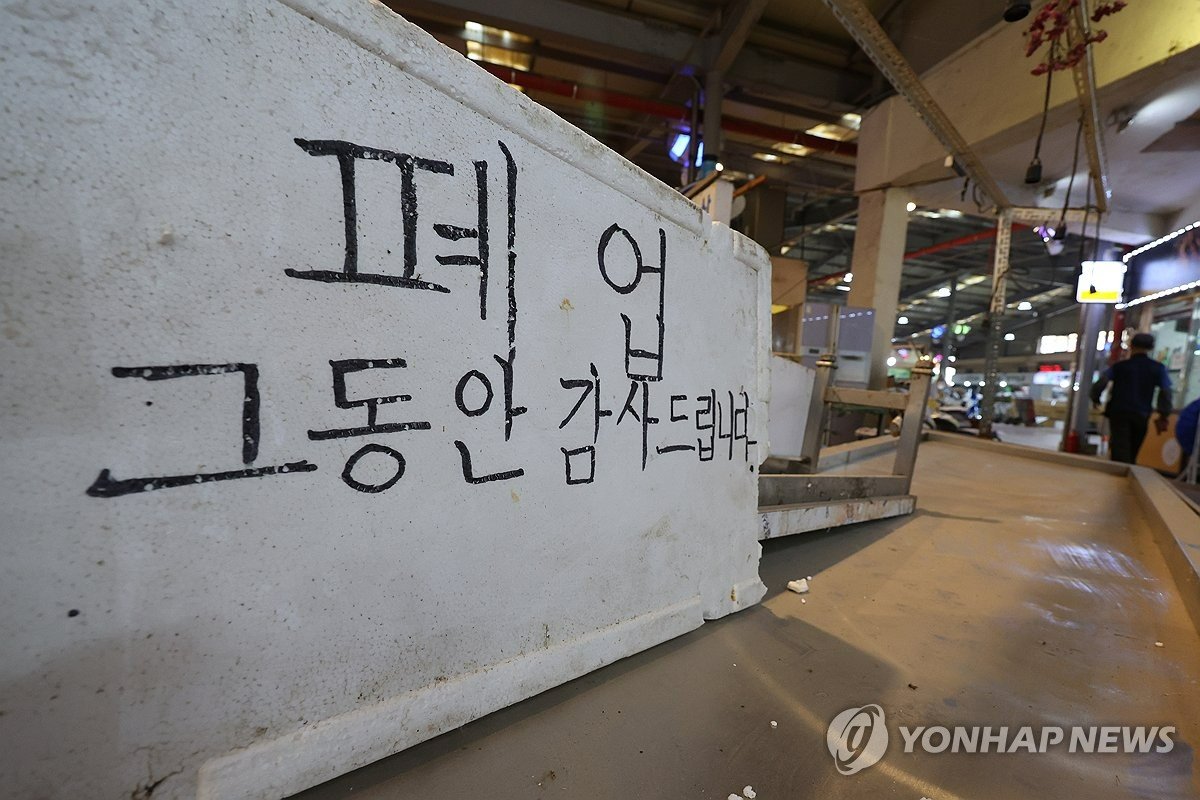 폐 업
그동안 감사드립니다
YONHAP NEWS